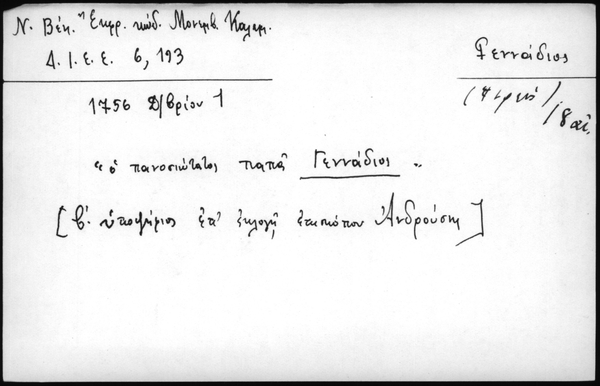 Ν. Βέη. "Εκφρ. κώδ. Μητρ. Μονεμβ. Καλαμ.
Δ.Ι.Ε.Ε. 6, 193
Γενναδιος
(ἱερεύς)
/18 αἰ.
1756 Δ/βρίου 1
"ὁ πανοσιώτατος παπᾶ Γεννάδιος"
[β'. ὑποψήφιος ἐπ' ἐκλογῇ ἐπισκόπου Ἀνδρούσης]